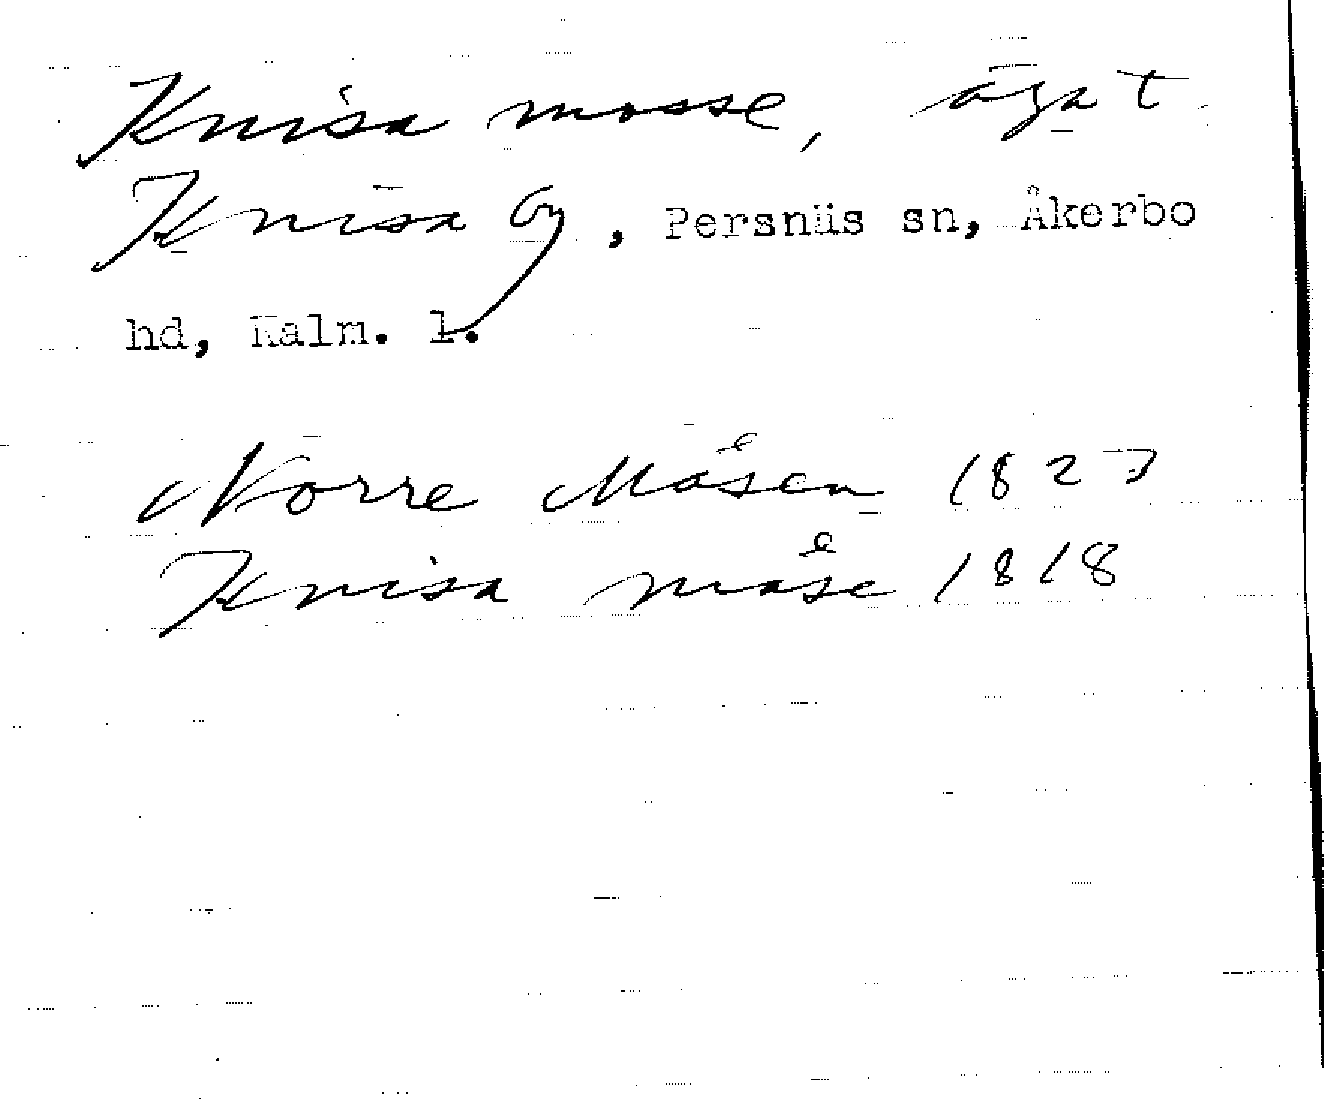 Knisa mosse, äga t.
Knisa by, Persnäs sn, Åkerbo
hd, Kalm. l.
Norre Måsen 1827
Knisa måse 1818